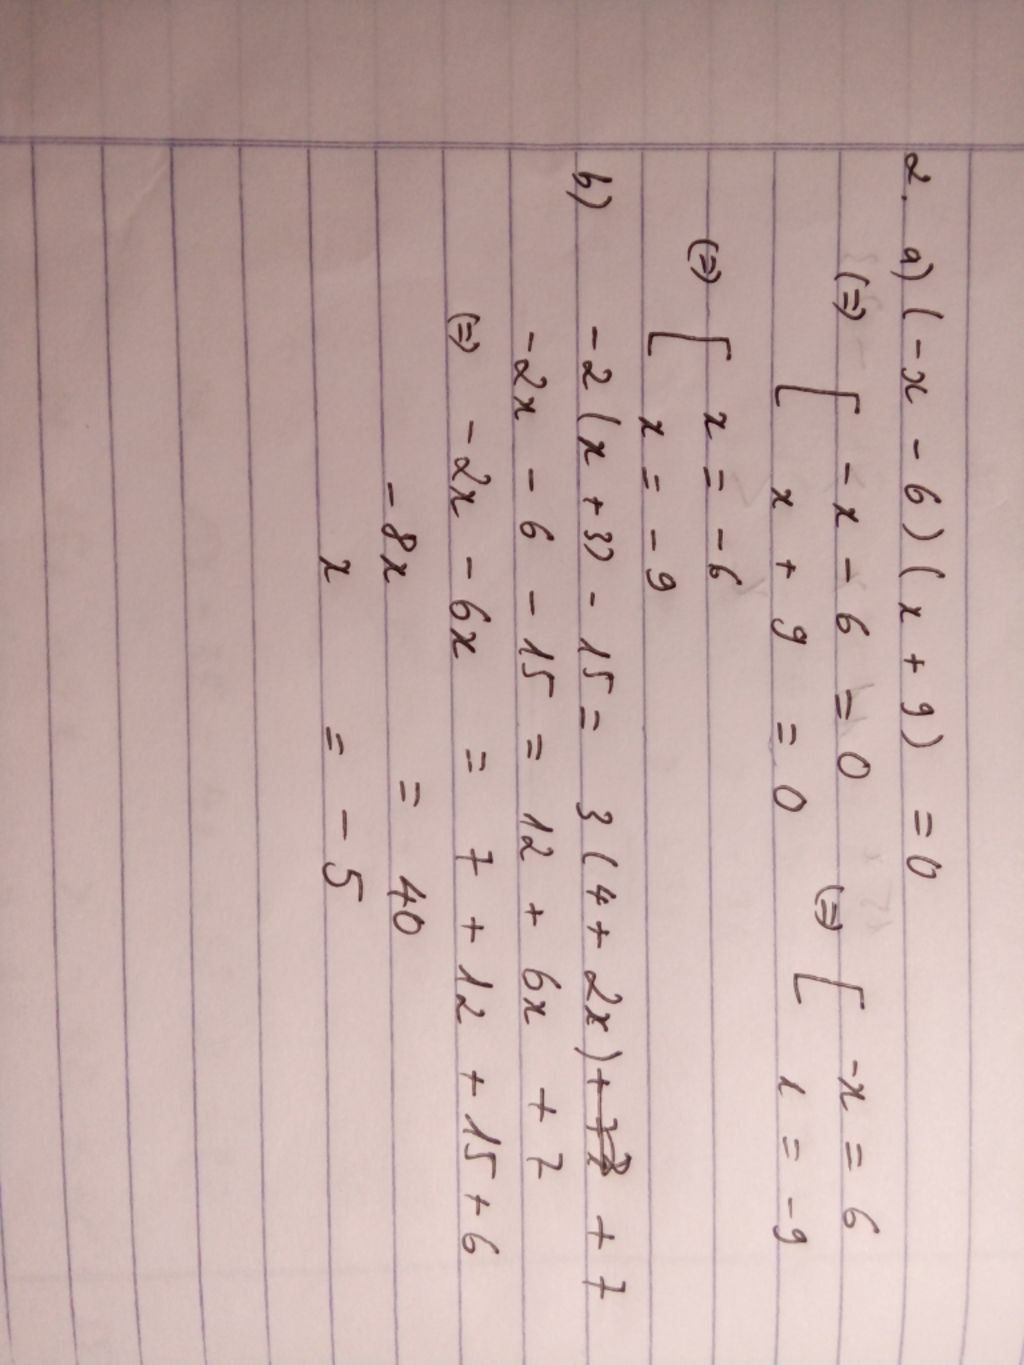 2. a) (-x - 6)(x + 9) = 0
(=) [ -x - 6 = 0 (=) [ -x = 6
x + 9 = 0 x = -9
(=) [ x = -6
x = -9
b) -2(x + 3) - 15 = 3(4 + 2x) + 7
-2x - 6 - 15 = 12 + 6x + 7
(=) -2x - 6x = 7 + 12 + 15 + 6
-8x = 40
x = -5